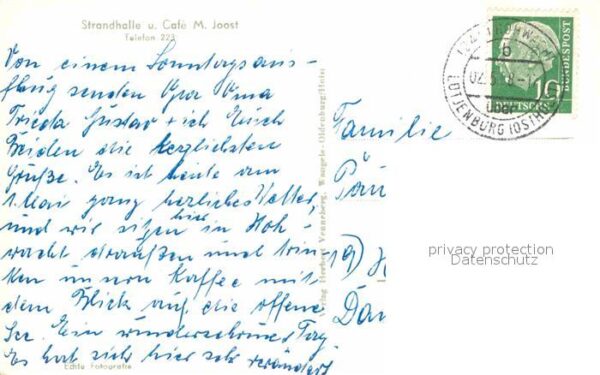 Strandhalle u. Café M. Joost
Telefon 223
Von einem Sonntagsaus-
flug senden Opa Oma
Frieda Gustav + ich Euch
Beiden die herzlichsten
Grüße. Es ist heute am
1. Mai ganz herrliches Wetter,
und wir sitzen hier in Hoh-
wacht draußen und trin-
ken unsern Kaffee mit
dem Blick auf die offene
See. Ein wunderschöner Tag.
Es hat sich hier sehr verändert
Echte Fotografie
Verlag Herbert Venneberg, Wangels-Oldenburg/Holst
Familie
19)
DEUTSCHE BUNDESPOST
10
b
02.5.
über
LÜTJENBURG (OSTHOLST)
privacy protection
Datenschutz